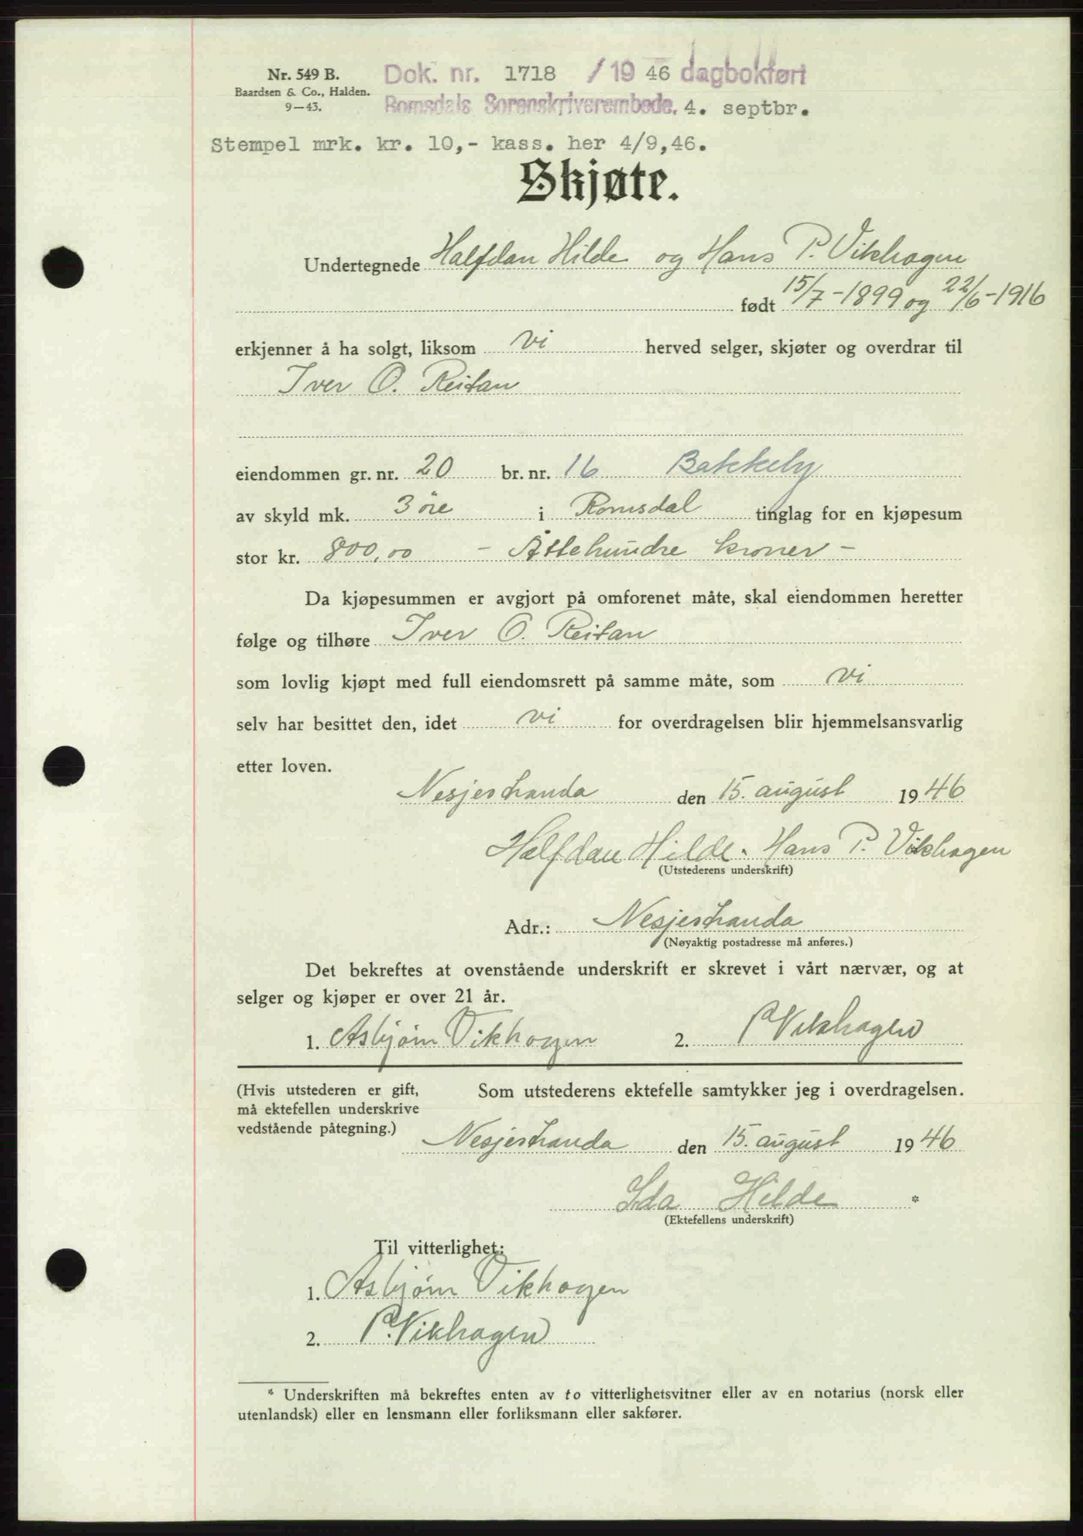 Nr. 549 B.
Baardsen & Co., Halden.
9—43.
Dok. nr. 1718 / 19 46 dagbokført
Romsdals Sorenskriverembede. 4. septbr.
Stempel mrk. kr. 10,- kass. her 4/9,46.
Skjøte.
Undertegnede Halfdan Hilde og Hans P. Vikhagen
født 15/7-1899 og 22/6-1916
erkjenner å ha solgt, liksom vi herved selger, skjøter og overdrar til
Iver O. Reitan
eiendommen gr. nr. 20 br. nr. 16 Bakkely
av skyld mk. 3 øre i Romsdal tinglag for en kjøpesum
stor kr. 800,00 - Åttehundre kroner -
Da kjøpesummen er avgjort på omforenet måte, skal eiendommen heretter
følge og tilhøre Iver O. Reitan
som lovlig kjøpt med full eiendomsrett på samme måte, som vi
selv har besittet den, idet vi for overdragelsen blir hjemmelsansvarlig
etter loven.
Nesjestranda den 15. august 1946
Halfdan Hilde. Hans P. Vikhagen
(Utstederens underskrift)
Adr.: Nesjestranda
(Nøyaktig postadresse må anføres.)
Det bekreftes at ovenstående underskrift er skrevet i vårt nærvær, og at
selger og kjøper er over 21 år.
1. Asbjørn Vikhagen 2. P. Vikhagen
(Hvis utstederen er gift, Som utstederens ektefelle samtykker jeg i overdragelsen.
må ektefellen underskrive
vedstående påtegning.)
Nesjestranda den 15. august 1946
Ida Hilde *
(Ektefellens underskrift)
Til vitterlighet:
1. Asbjørn Vikhagen
2. P. Vikhagen
* Underskriften må bekreftes enten av to vitterlighetsvitner eller av en notarius (norsk eller
utenlandsk) eller en lensmann eller forliksmann eller sakfører.